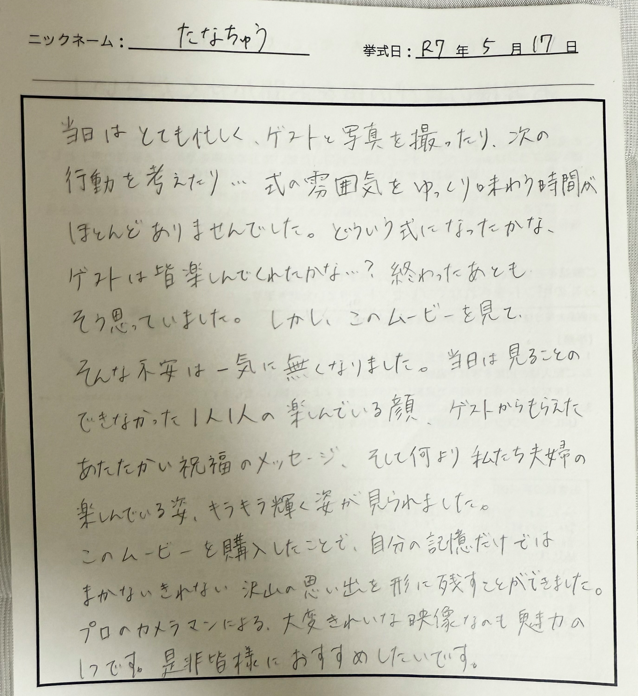 ニックネーム：たなちゅう 挙式日：R7年5月17日
当日はとても忙しく、ゲストと写真を撮ったり、次の
行動を考えたり… 式の雰囲気をゆっくり味わう時間が
ほとんどありませんでした。どういう式になったかな、
ゲストは皆楽しんでくれたかな…？終わったあとも
そう思っていました。しかし、このムービーを見て、
そんな不安は一気に無くなりました。当日は見ることの
できなかった1人1人の楽しんでいる顔、ゲストからもらえた
あたたかい祝福のメッセージ、そして何より私たち夫婦の
楽しんでいる姿、キラキラ輝く姿が見られました。
このムービーを購入したことで、自分の記憶だけでは
まかないきれない沢山の思い出を形に残すことができました。
プロのカメラマンによる、大変きれいな映像なのも魅力の
1つです。是非皆様におすすめしたいです。